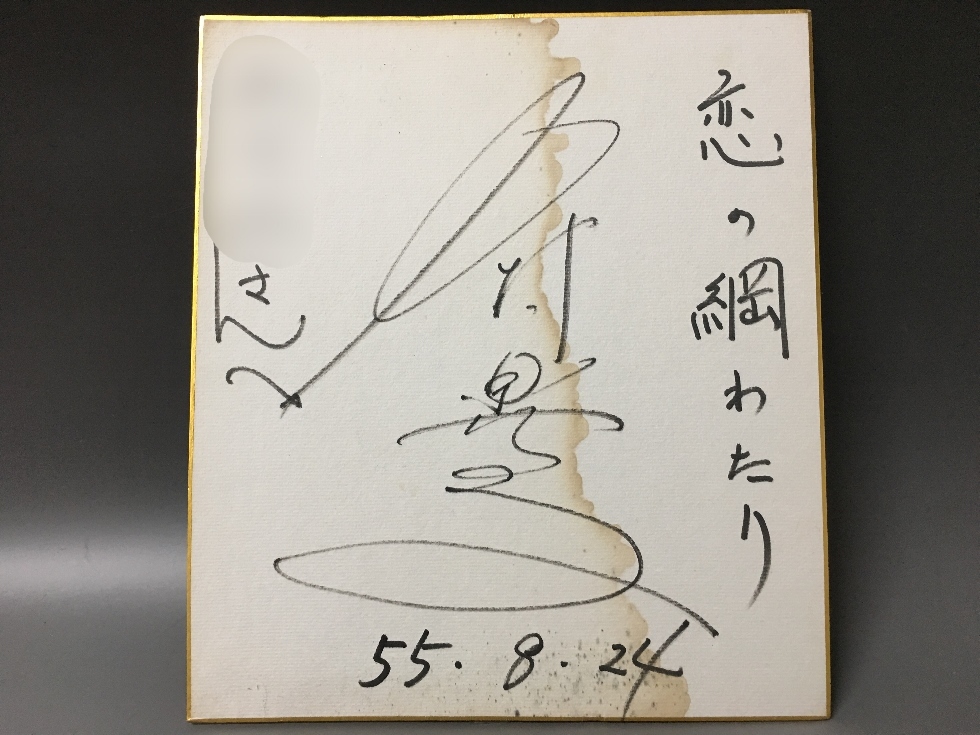 恋の綱わたり
さんへ
55.8.24